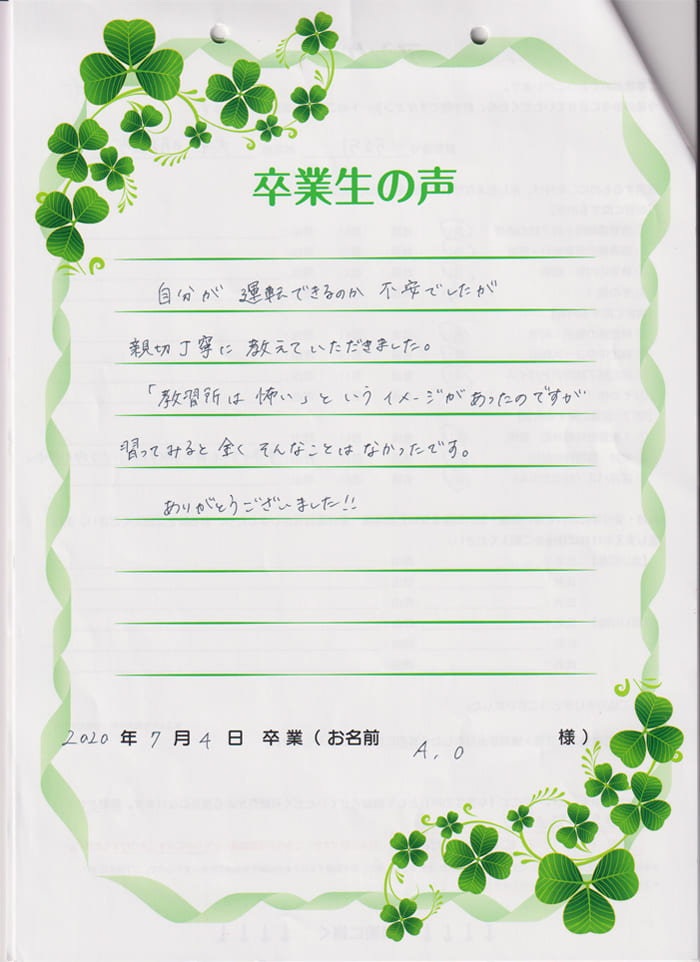 卒業生の声
自分が 運転できるのか 不安でしたが
親切丁寧に 教えていただきました。
「教習所は 怖い」というイメージがあったのですが
習ってみると全くそんなことはなかったです。
ありがとうございました!!
2020 年 7 月 4 日 卒業(お名前 A.O 様)